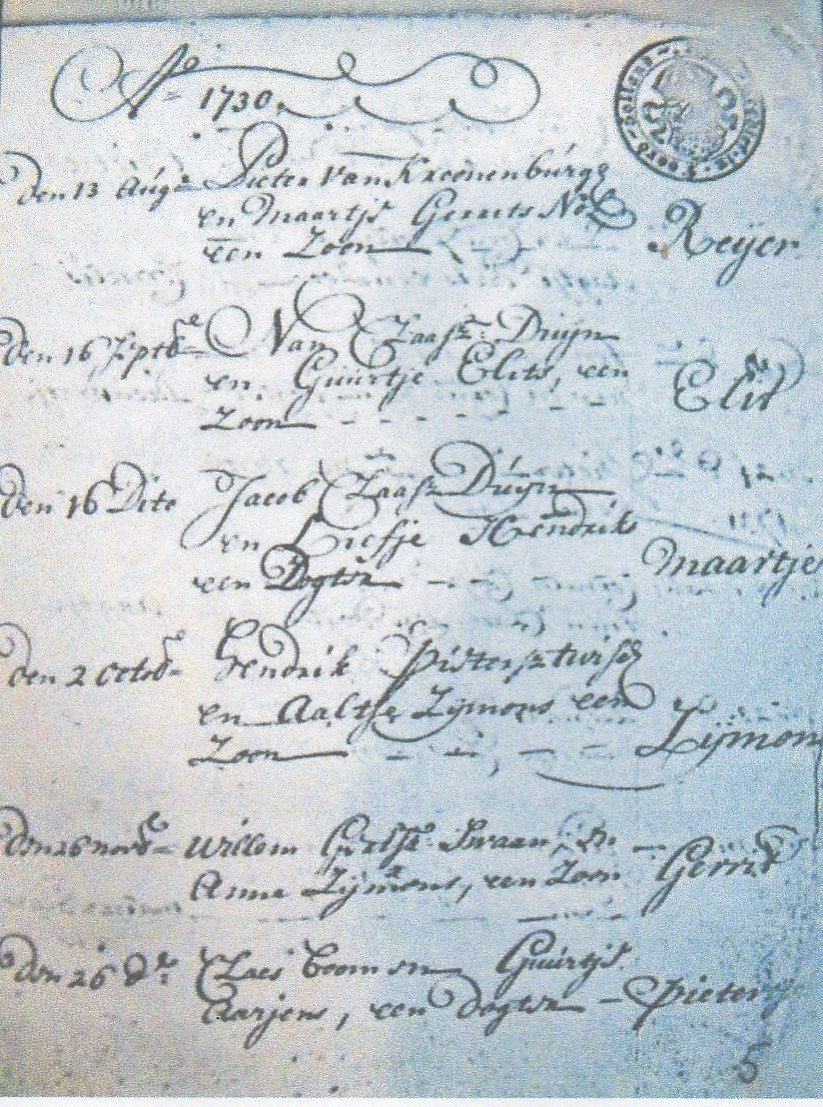 Ao 1730.
den 13 Augs Pieter van Kroonenburg
en Maartje Gerrits Nol
een Zoon Reijer
den 16 Septbe Nan Claasz: Duijn
en Guurtje Elits, een Elit
Zoon
den 16 Dito Jacob Claasz Duijn
en Liefje Hendriks
een Dogter Maartje
den 2 Octobe Hendrik Pietersz twisk
en Aaltje Zijmons een
Zoon Zijmon
den 26 novbe Willem Gertsz: Swaan, En
Anne Zijmons, een Zoon Gerrit
den 26 Do: Claes Boom en Guurtje
Aarjens, een dogter Pietertje
5